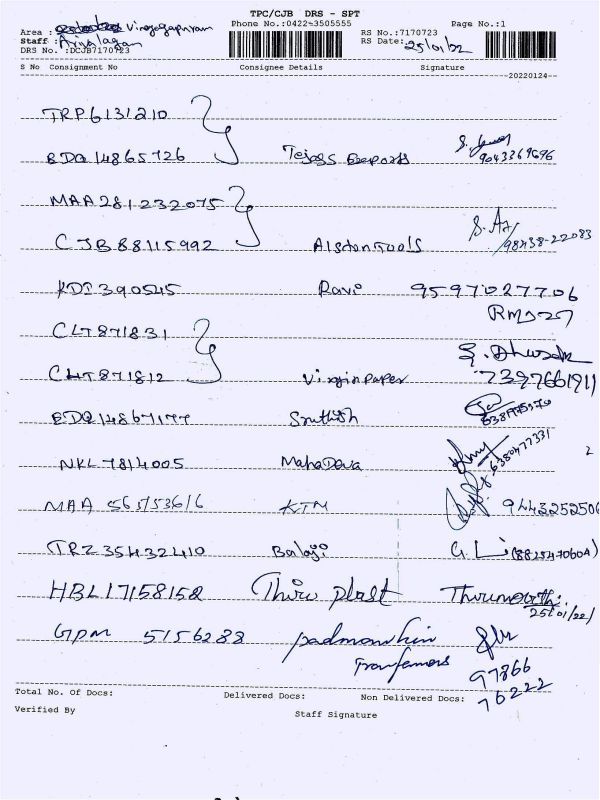 TPC/CJB DRS - SPT
Phone No.:0422-3505555 Page No.:1
Area : Virajagapuram
Staff : Ariyalagan
DRS No. :DCJB7170723
RS No.:7170723
RS Date: 25/01/22
S No Consignment No Consignee Details Signature
20220124
TRP6131210
EDQ14865726 Tejass Exports 9043369696
MAA281232075
CJB88115992 Alston Tools 98438-22083
KDI390545 Ravi 9597027706
CLT871831
CLT871812 Virgin paper 7397661911
EDQ14867177
NKL7814005 Mahadeva 6380477331
2
MAA 565153616 KTM 944325250
TRZ35432410 Balaji
HBL17158152 Thiru plast Thirumoorthi
25/01/22/
GPM 5156288 padmavathin
Tranfamors
97866
76222
Total No. of Docs: Delivered Docs: Non Delivered Docs:
Verified By Staff Signature